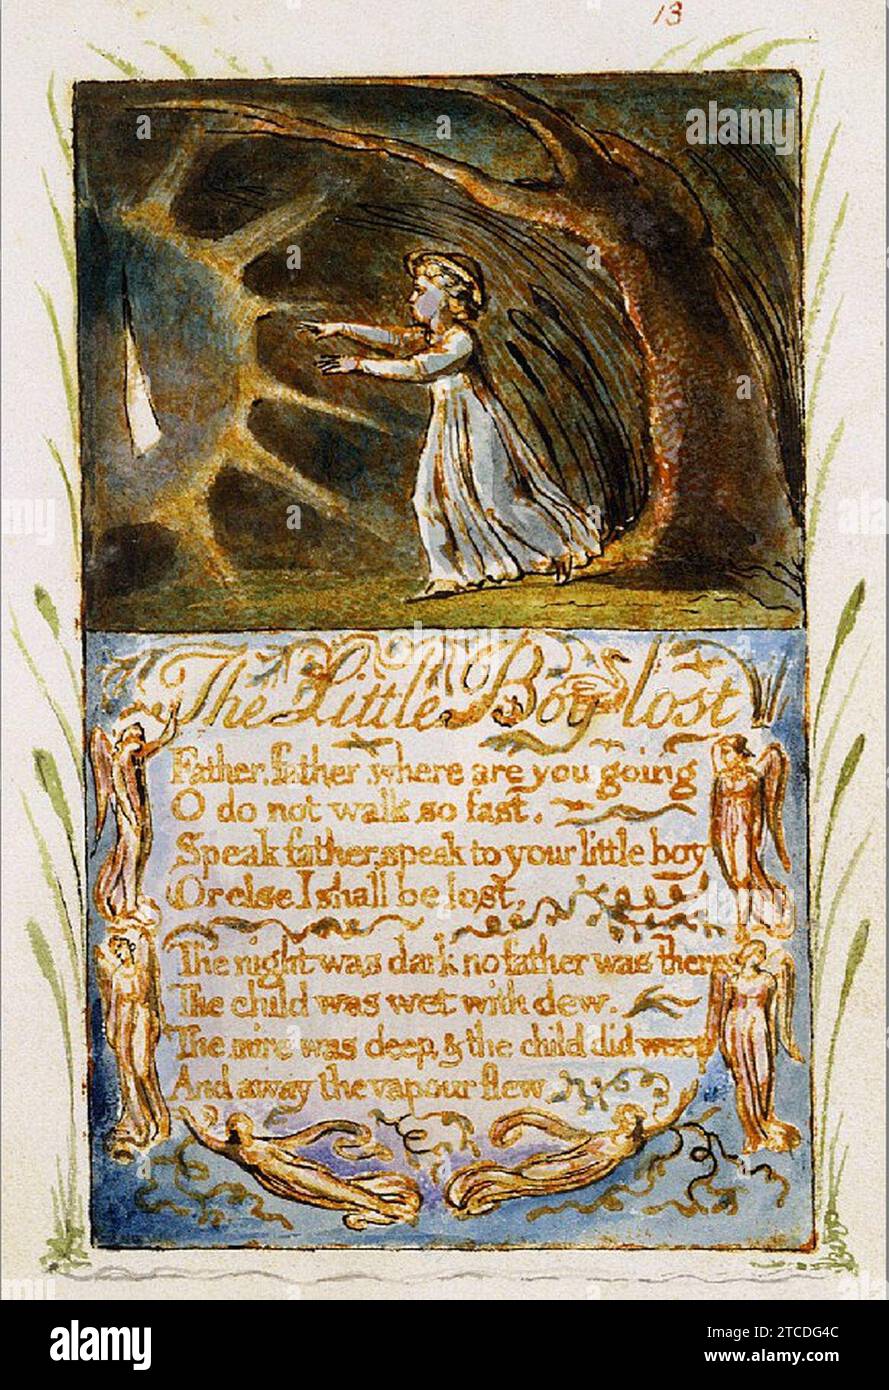 13
The Little Boy lost
Father, father, where are you going
O do not walk so fast.
Speak father, speak to your little boy
Or else I shall be lost,
The night was dark no father was there
The child was wet with dew.
The mire was deep, & the child did weep
And away the vapour flew.
alamy
Image ID: 2TCDG4C
www.alamy.com